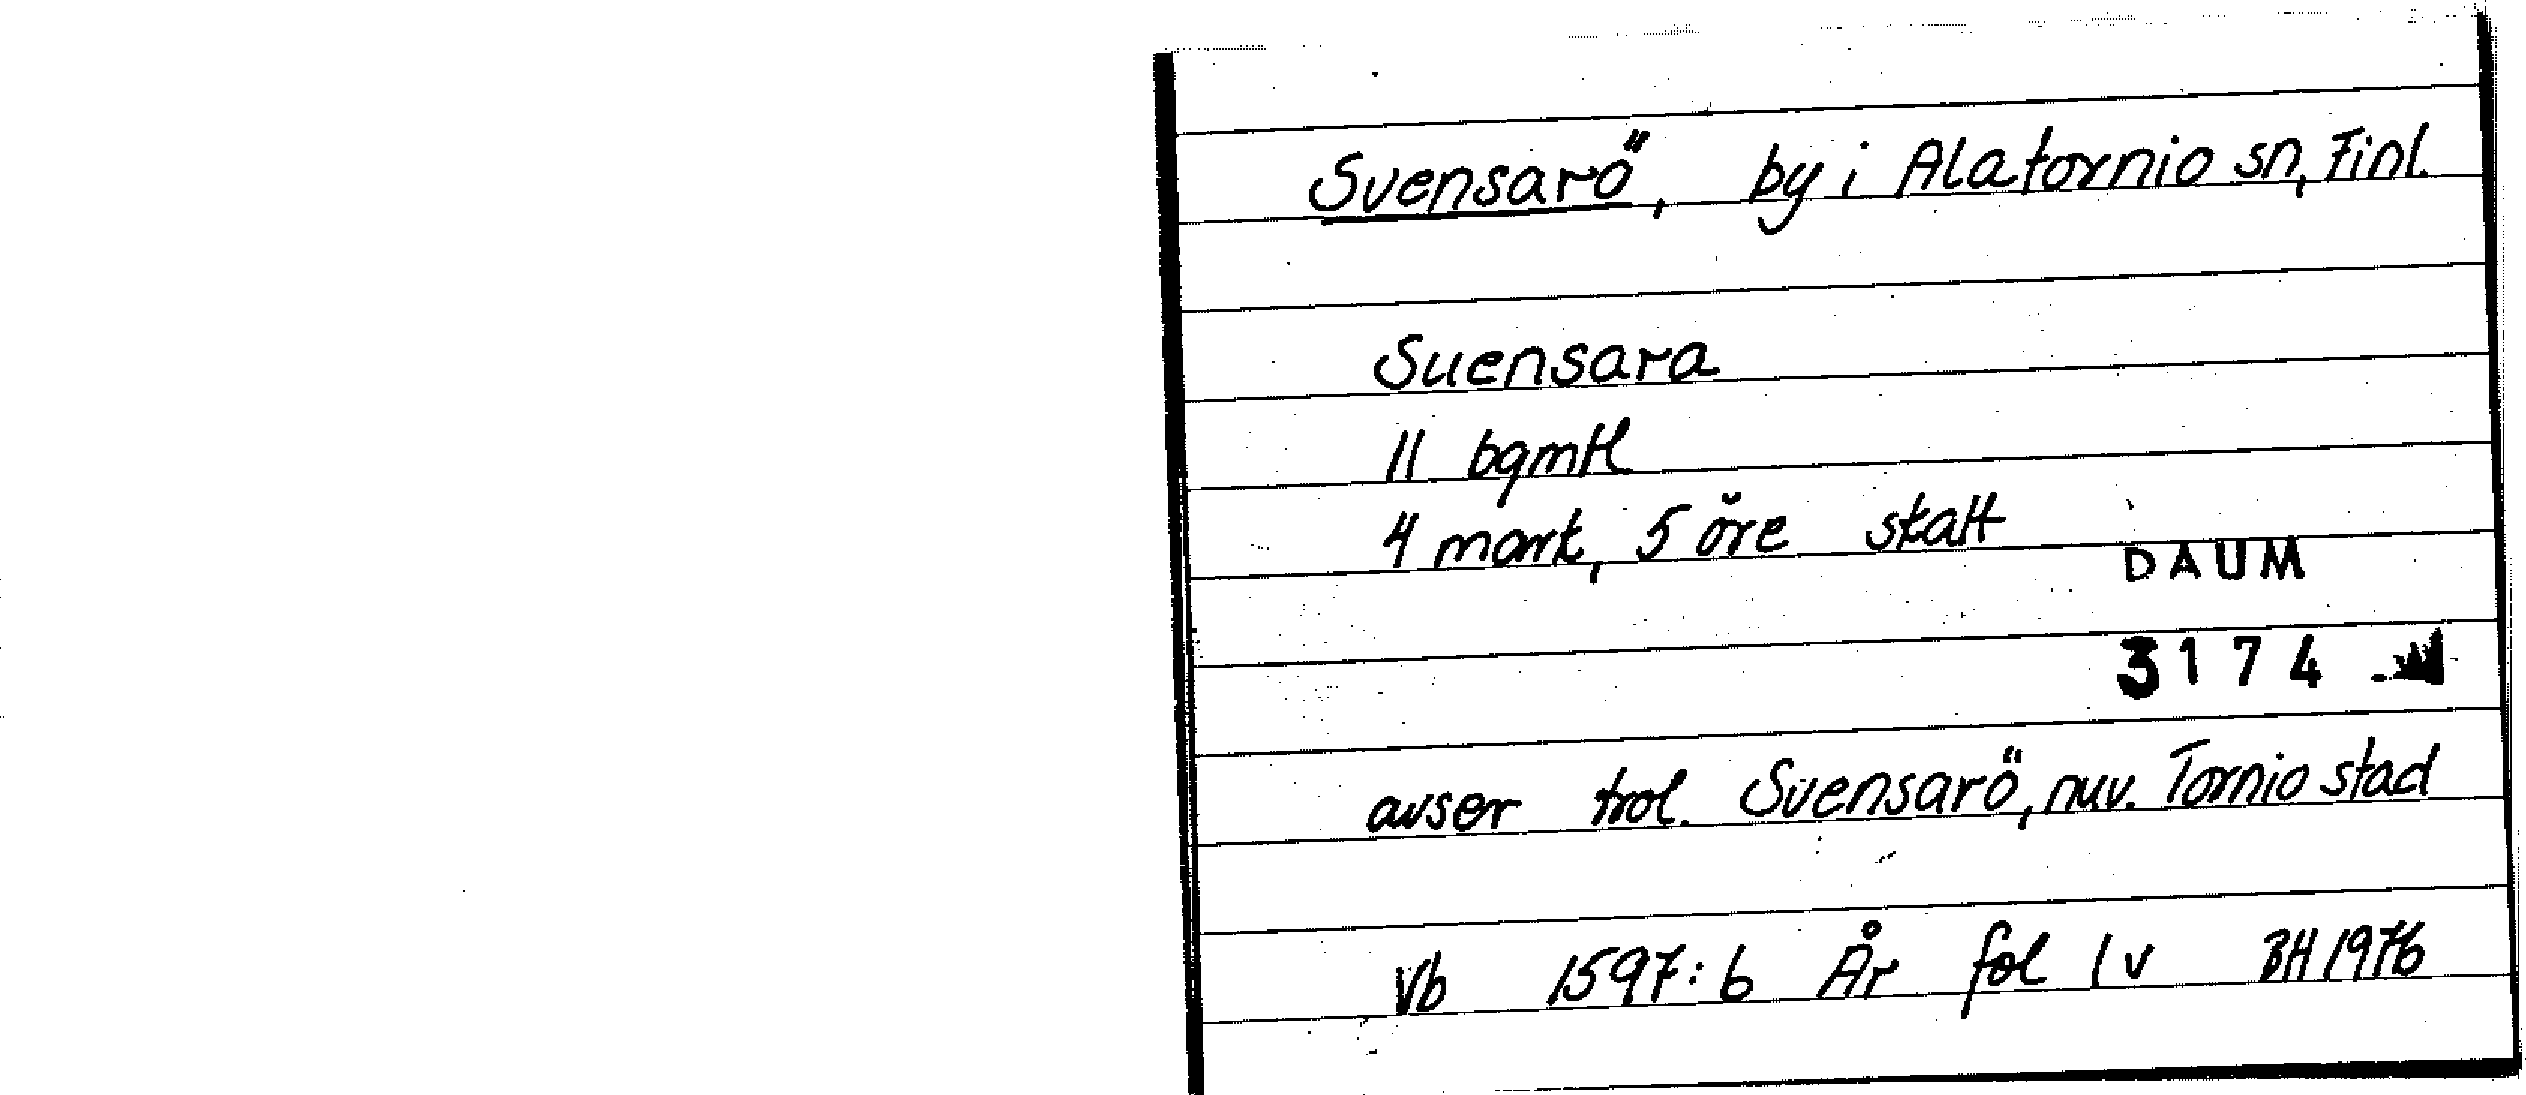 Svensarö, by i Alatornio sn, Finl.
Suensara
11 bqmtl
4 mark, 5 öre skatt
DAUM
3174
avser trol. Svensarö, nuv. Tornio stad
Vb 1597:6 År fol 1v BH 1976